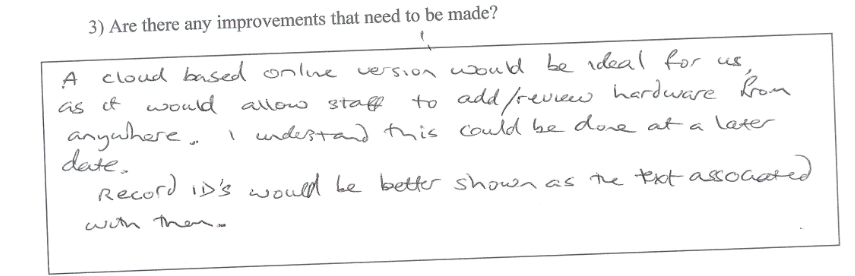 3) Are there any improvements that need to be made?
A cloud based online version would be ideal for us,
as it would allow staff to add/review hardware from
anywhere. I understand this could be done at a later
date.
Record ID's would be better shown as the text associated
with them.